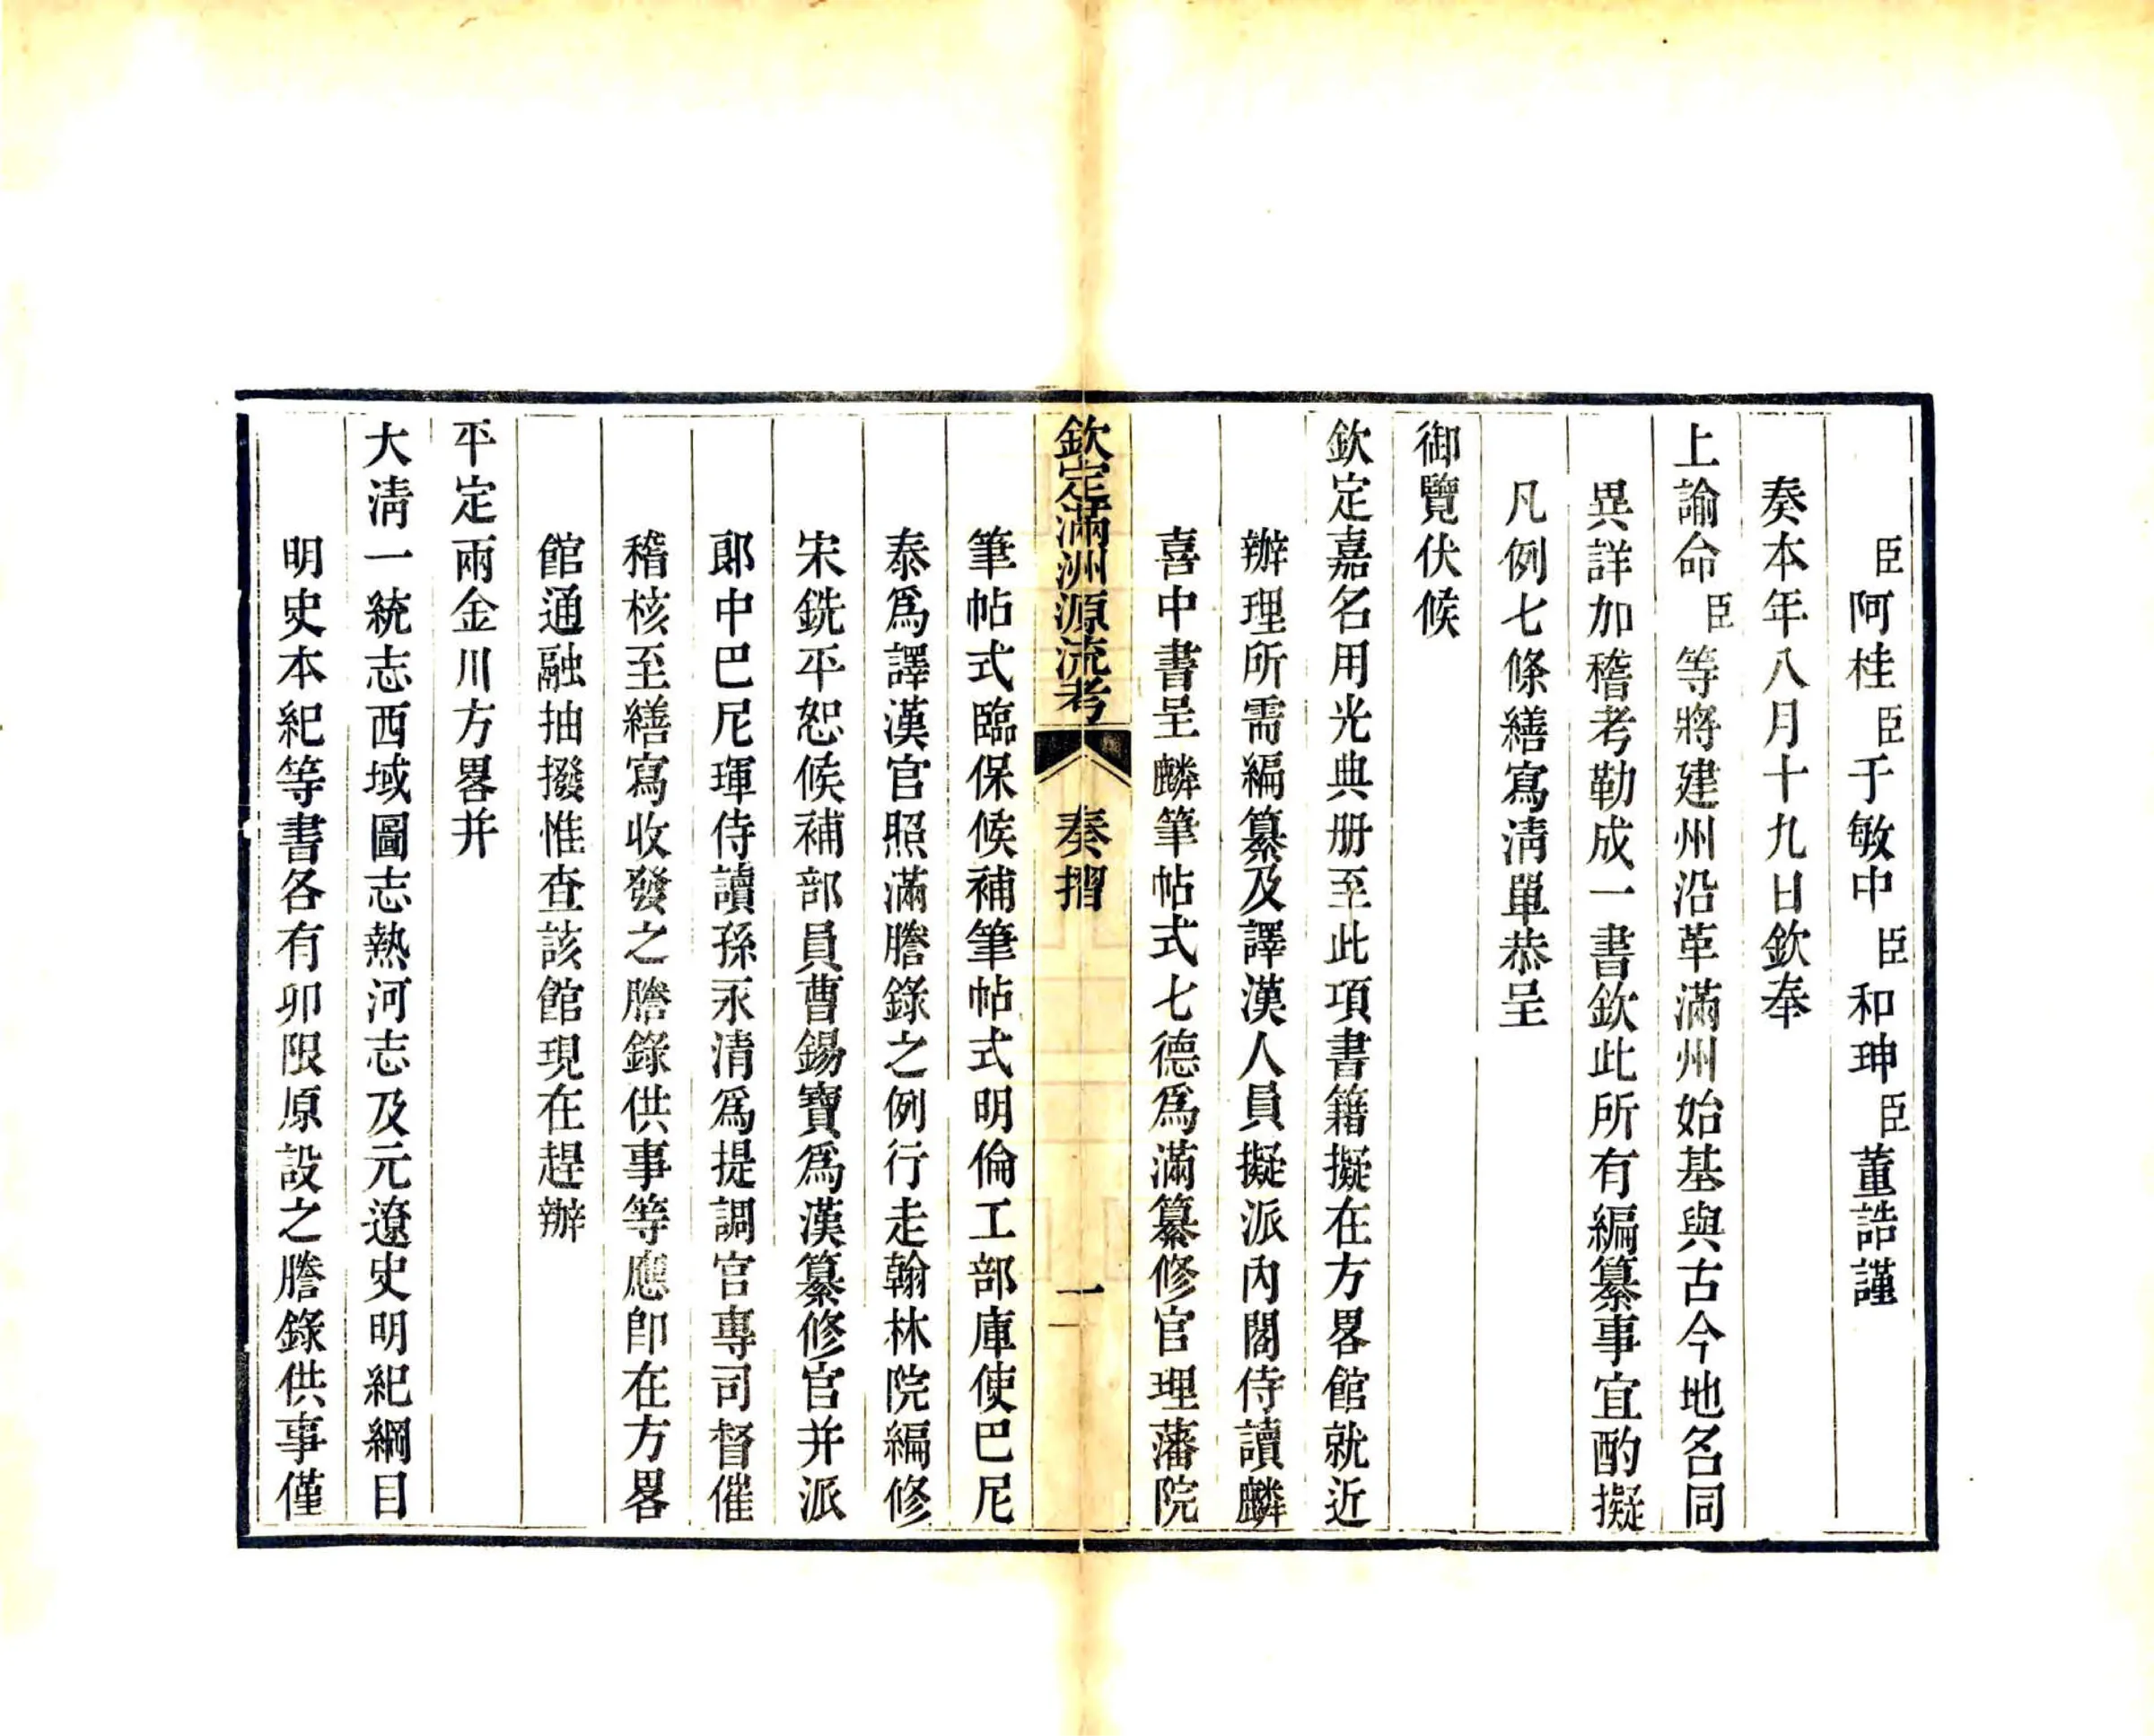 臣阿桂臣于敏中臣和珅臣董誥謹
奏本年八月十九日欽奉
上諭命臣等將建州沿革滿州始基與古今地名同
異詳加稽考勒成一書欽此所有編纂事宜酌擬
凡例七條繕寫清單恭呈
御覽伏候
欽定嘉名用光典册至此項書籍擬在方畧館就近
辦理所需編纂及譯漢人員擬派內閣侍讀麟
喜中書呈麟筆帖式七德爲滿纂修官理藩院
欽定滿洲源流考 奏摺 一
筆帖式臨保候補筆帖式明倫工部庫使巴尼
泰爲譯漢官照滿謄錄之例行走翰林院編修
宋銑平恕候補部員曹錫寶爲漢纂修官并派
郞中巴尼琿侍讀孫永清爲提調官專司督催
稽核至繕寫收發之謄錄供事等應卽在方畧
館通融抽撥惟查該館現在趕辦
平定兩金川方畧并
大淸一統志西域圖志熱河志及元遼史明紀綱目
明史本紀等書各有卯限原設之謄錄供事僅